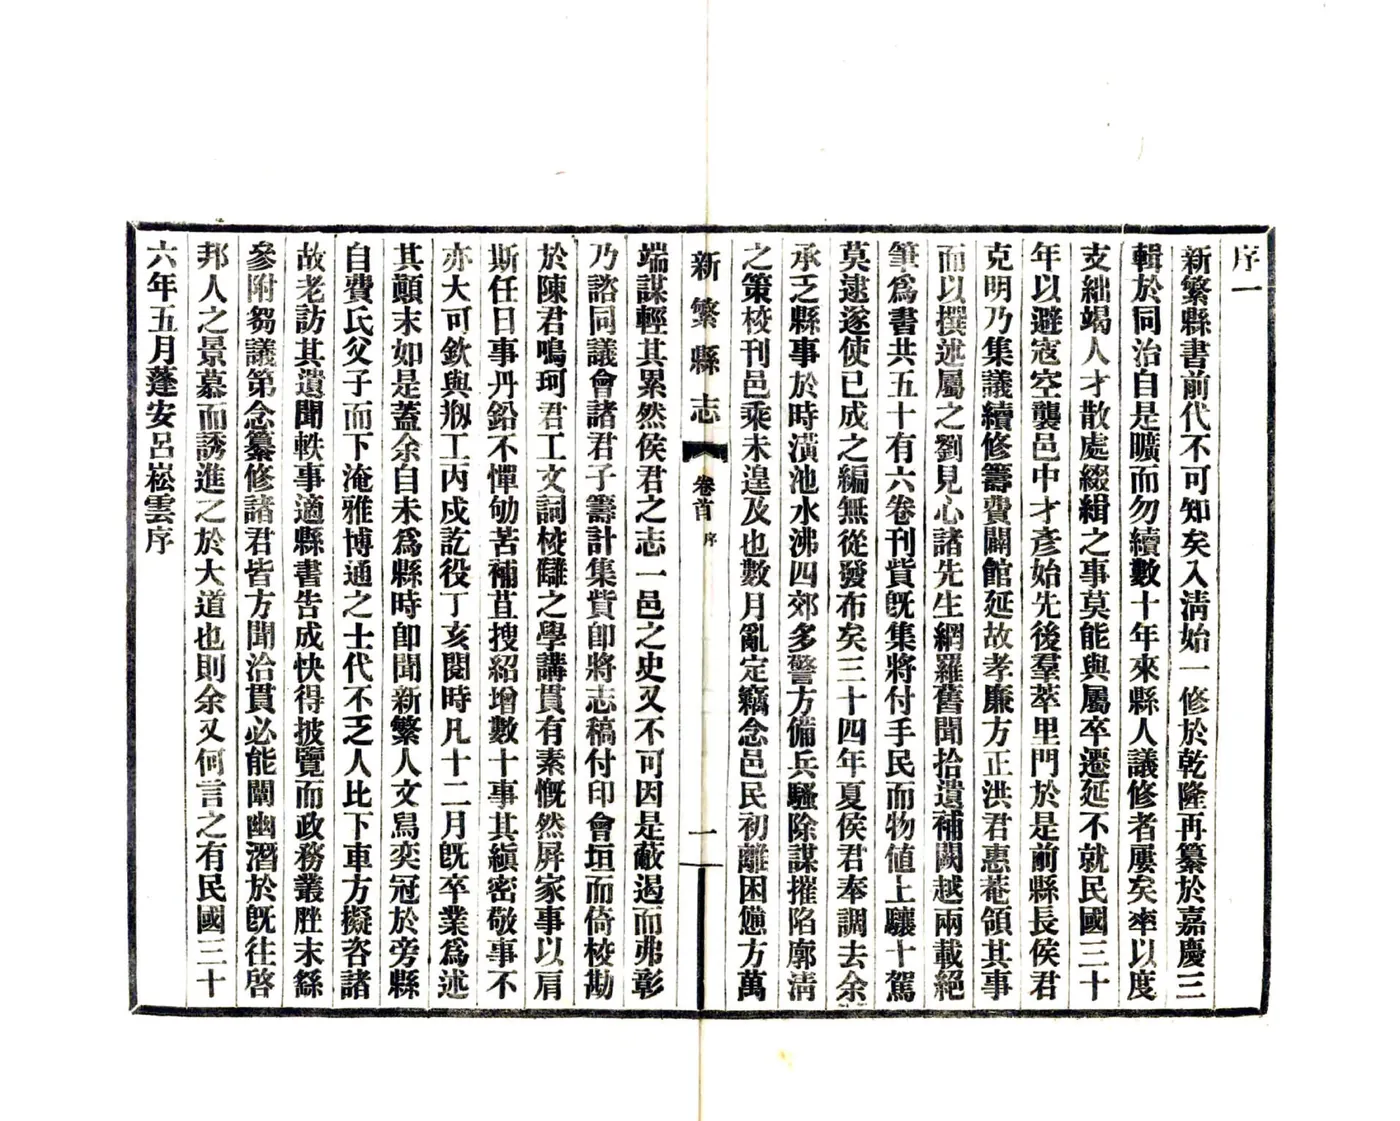 序一
新繁縣書前代不可知矣入淸始一修於乾隆再纂於嘉慶三
輯於同治自是曠而勿續數十年來縣人議修者屢矣率以度
支絀竭人才散處綴緝之事莫能與屬卒遷延不就民國三十
年以避寇空襲邑中才彥始先後羣萃里門於是前縣長侯君
克明乃集議續修籌費闢館延故孝廉方正洪君惠菴領其事
而以撰述屬之劉見心諸先生網羅舊聞拾遺補闕越兩載絕
筆爲書共五十有六卷刊貲旣集將付手民而物値上驤十駕
莫逮遂使已成之編無從發布矣三十四年夏侯君奉調去余
承乏縣事於時潢池水沸四郊多警方備兵騷除謀摧陷廓淸
之策校刊邑乘未遑及也數月亂定竊念邑民初離困憊方萬
新繁縣志 卷首 序 一
端謀輕其累然侯君之志一邑之史又不可因是蔽遏而弗彰
乃諮同議會諸君子籌計集貲卽將志稿付印會垣而倚校勘
於陳君鳴珂君工文詞校讎之學講貫有素慨然屏家事以肩
斯任日事丹鉛不憚劬苦補苴搜紹增數十事其縝密敬事不
亦大可欽與剏工丙戌訖役丁亥閱時凡十二月旣卒業爲述
其顚末如是蓋余自未爲縣時卽聞新繁人文舃奕冠於旁縣
自費氏父子而下淹雅博通之士代不乏人比下車方擬咨諸
故老訪其遺聞軼事適縣書告成快得披覽而政務叢脞末繇
參附芻議第念纂修諸君皆方聞洽貫必能闡幽潛於旣往啓
邦人之景慕而誘進之於大道也則余又何言之有民國三十
六年五月蓬安呂崧雲序